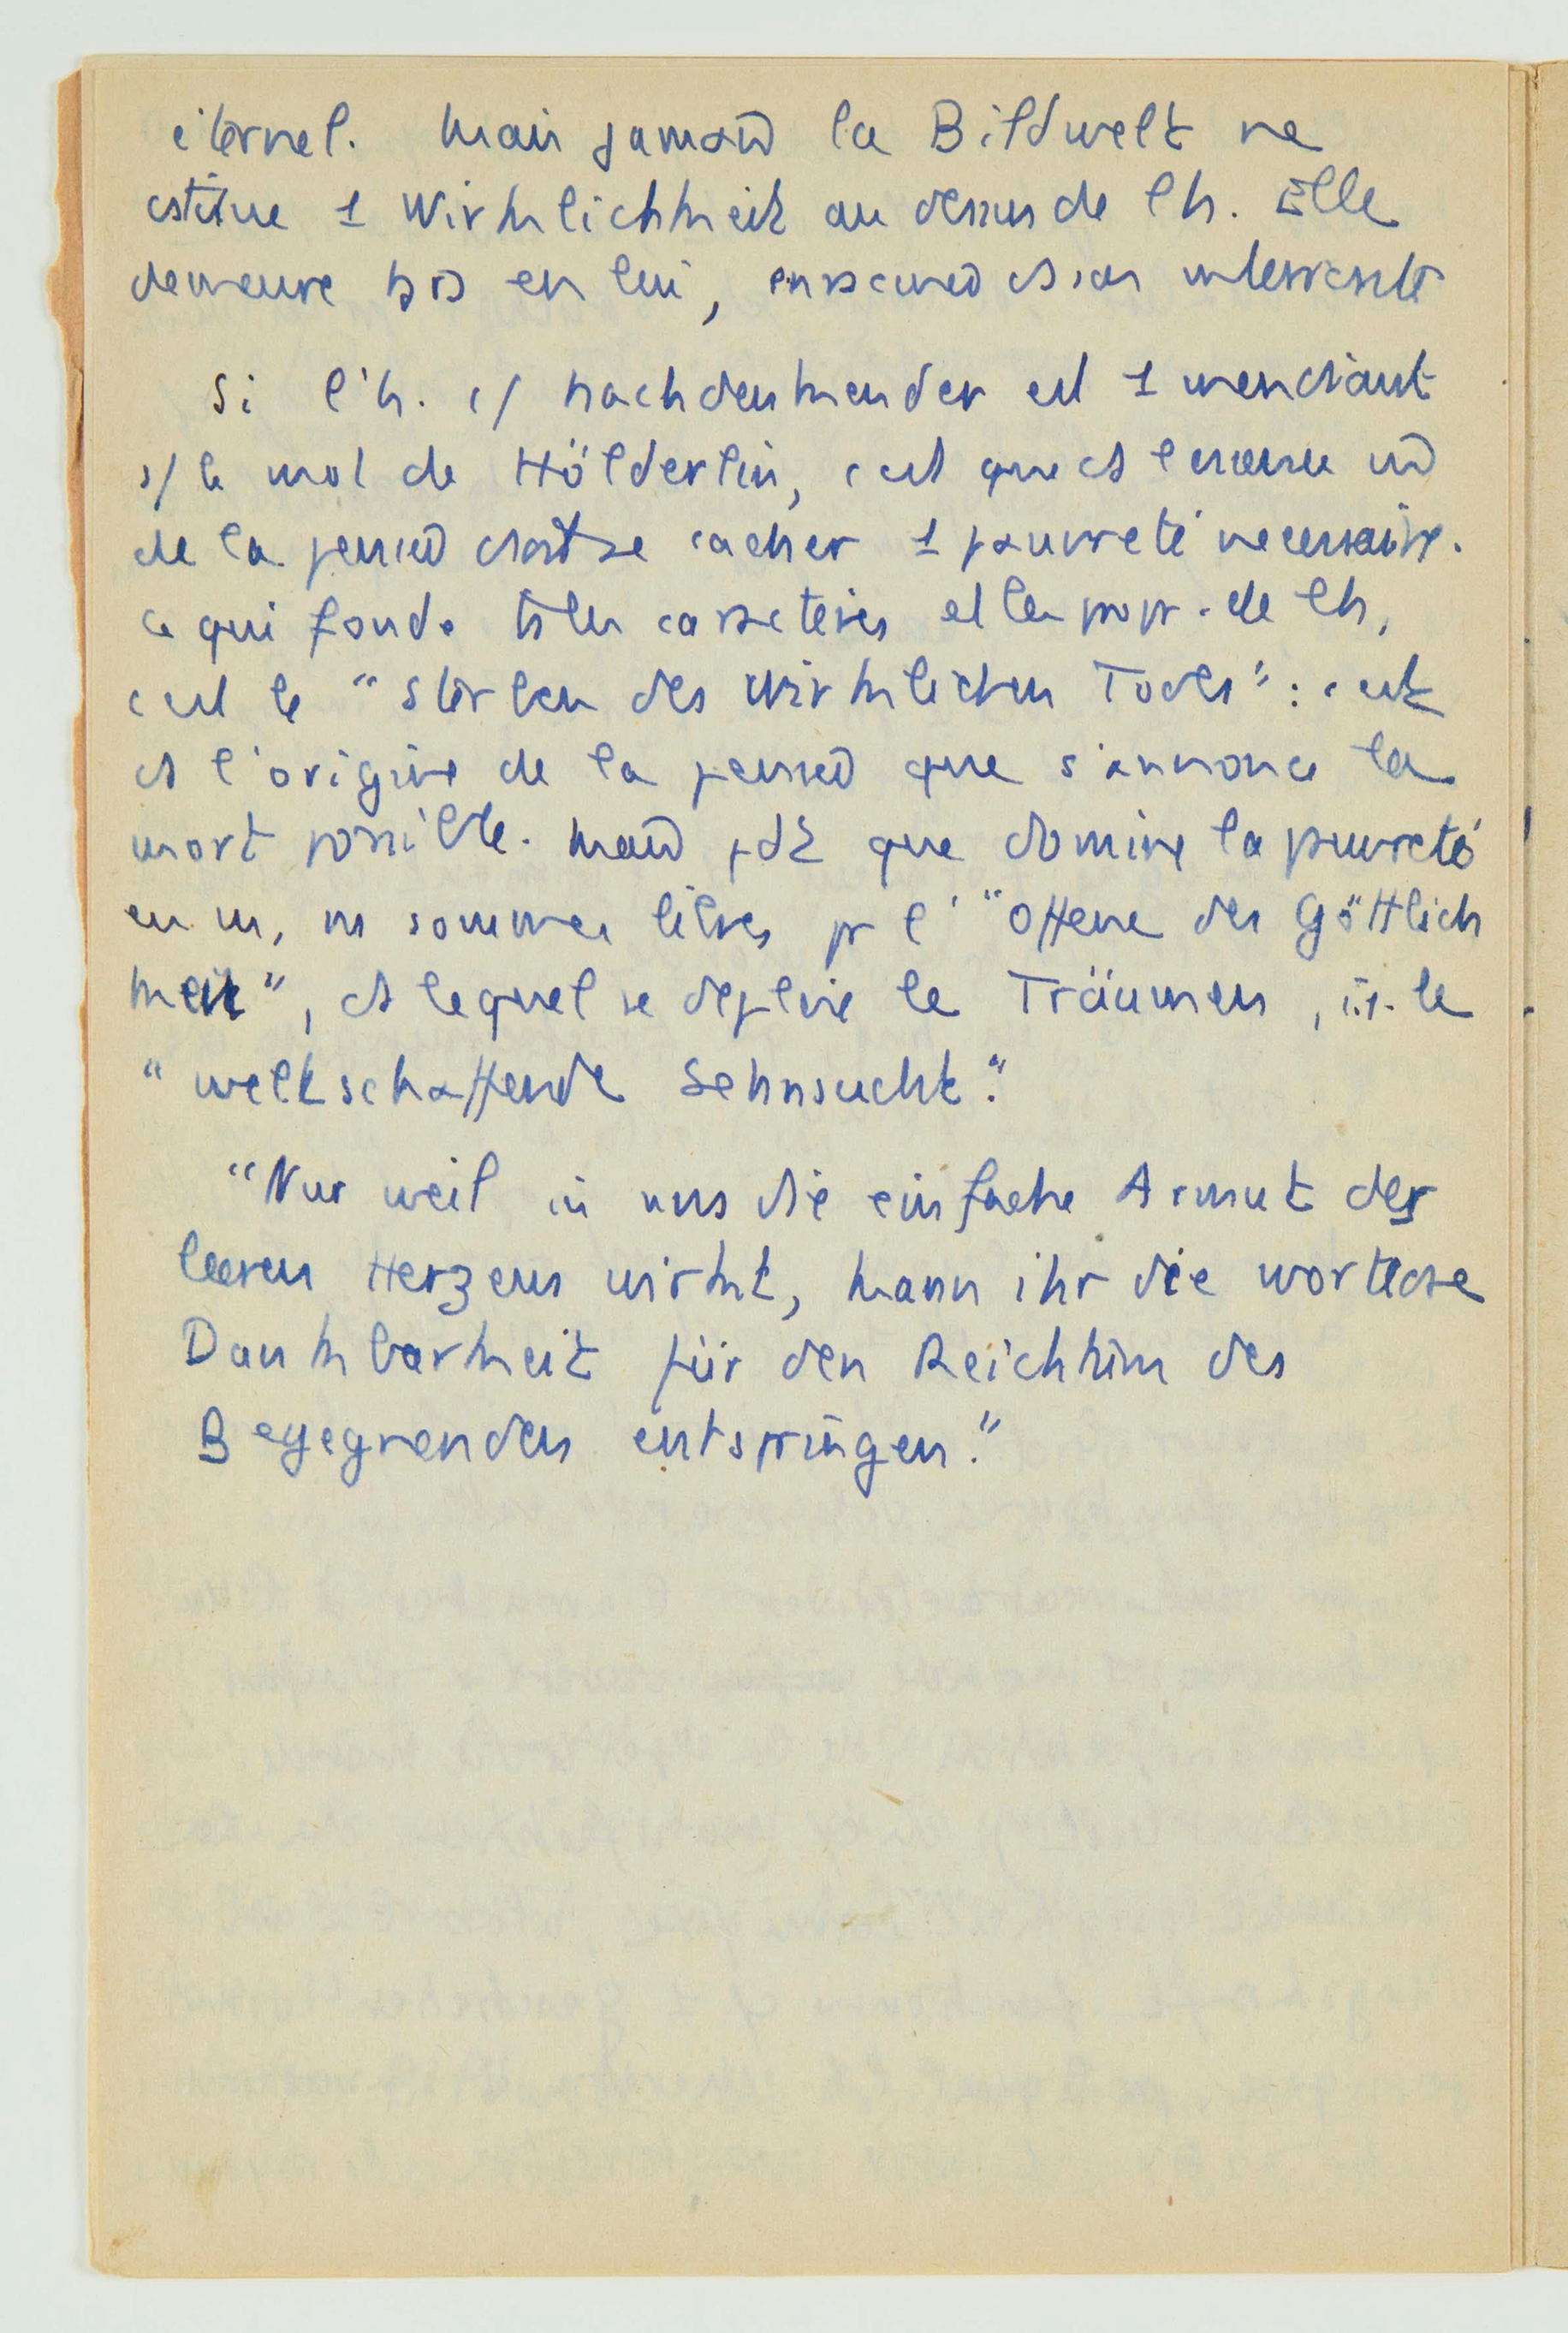 éternel. Mais jamais la Bildwelt ne
cstitue 1 Wirklichkeit au dessus de l'h. Elle
demeure tjs en lui, enracinée ds son
Si l'h. c/ nachdenkender est 1 mendiant
s/ le mot de Hölderlin, c'est que ds
de la pensée doit se cacher 1 pauvreté necessaire.
Ce qui fonde ts les caractères et les propr. de l'h,
c'est le "Sterben des Wirklichen Todes" : c'est
ds l'origine de la pensée que s'annonce la
mort possible. Mais pdt que domine la pauvreté
en ns, ns sommes libres pr l' "Offene der Göttlich
keit", ds lequel se deploie le Träumen, i.e. le
"weltschaffende Sehnsucht."
"Nur weil in uns die einfache Armut des
leeren Herzens wirkt, kann ihr die wortlose
Dankbarkeit für den Reichtum des
Begegnenden entspringen."